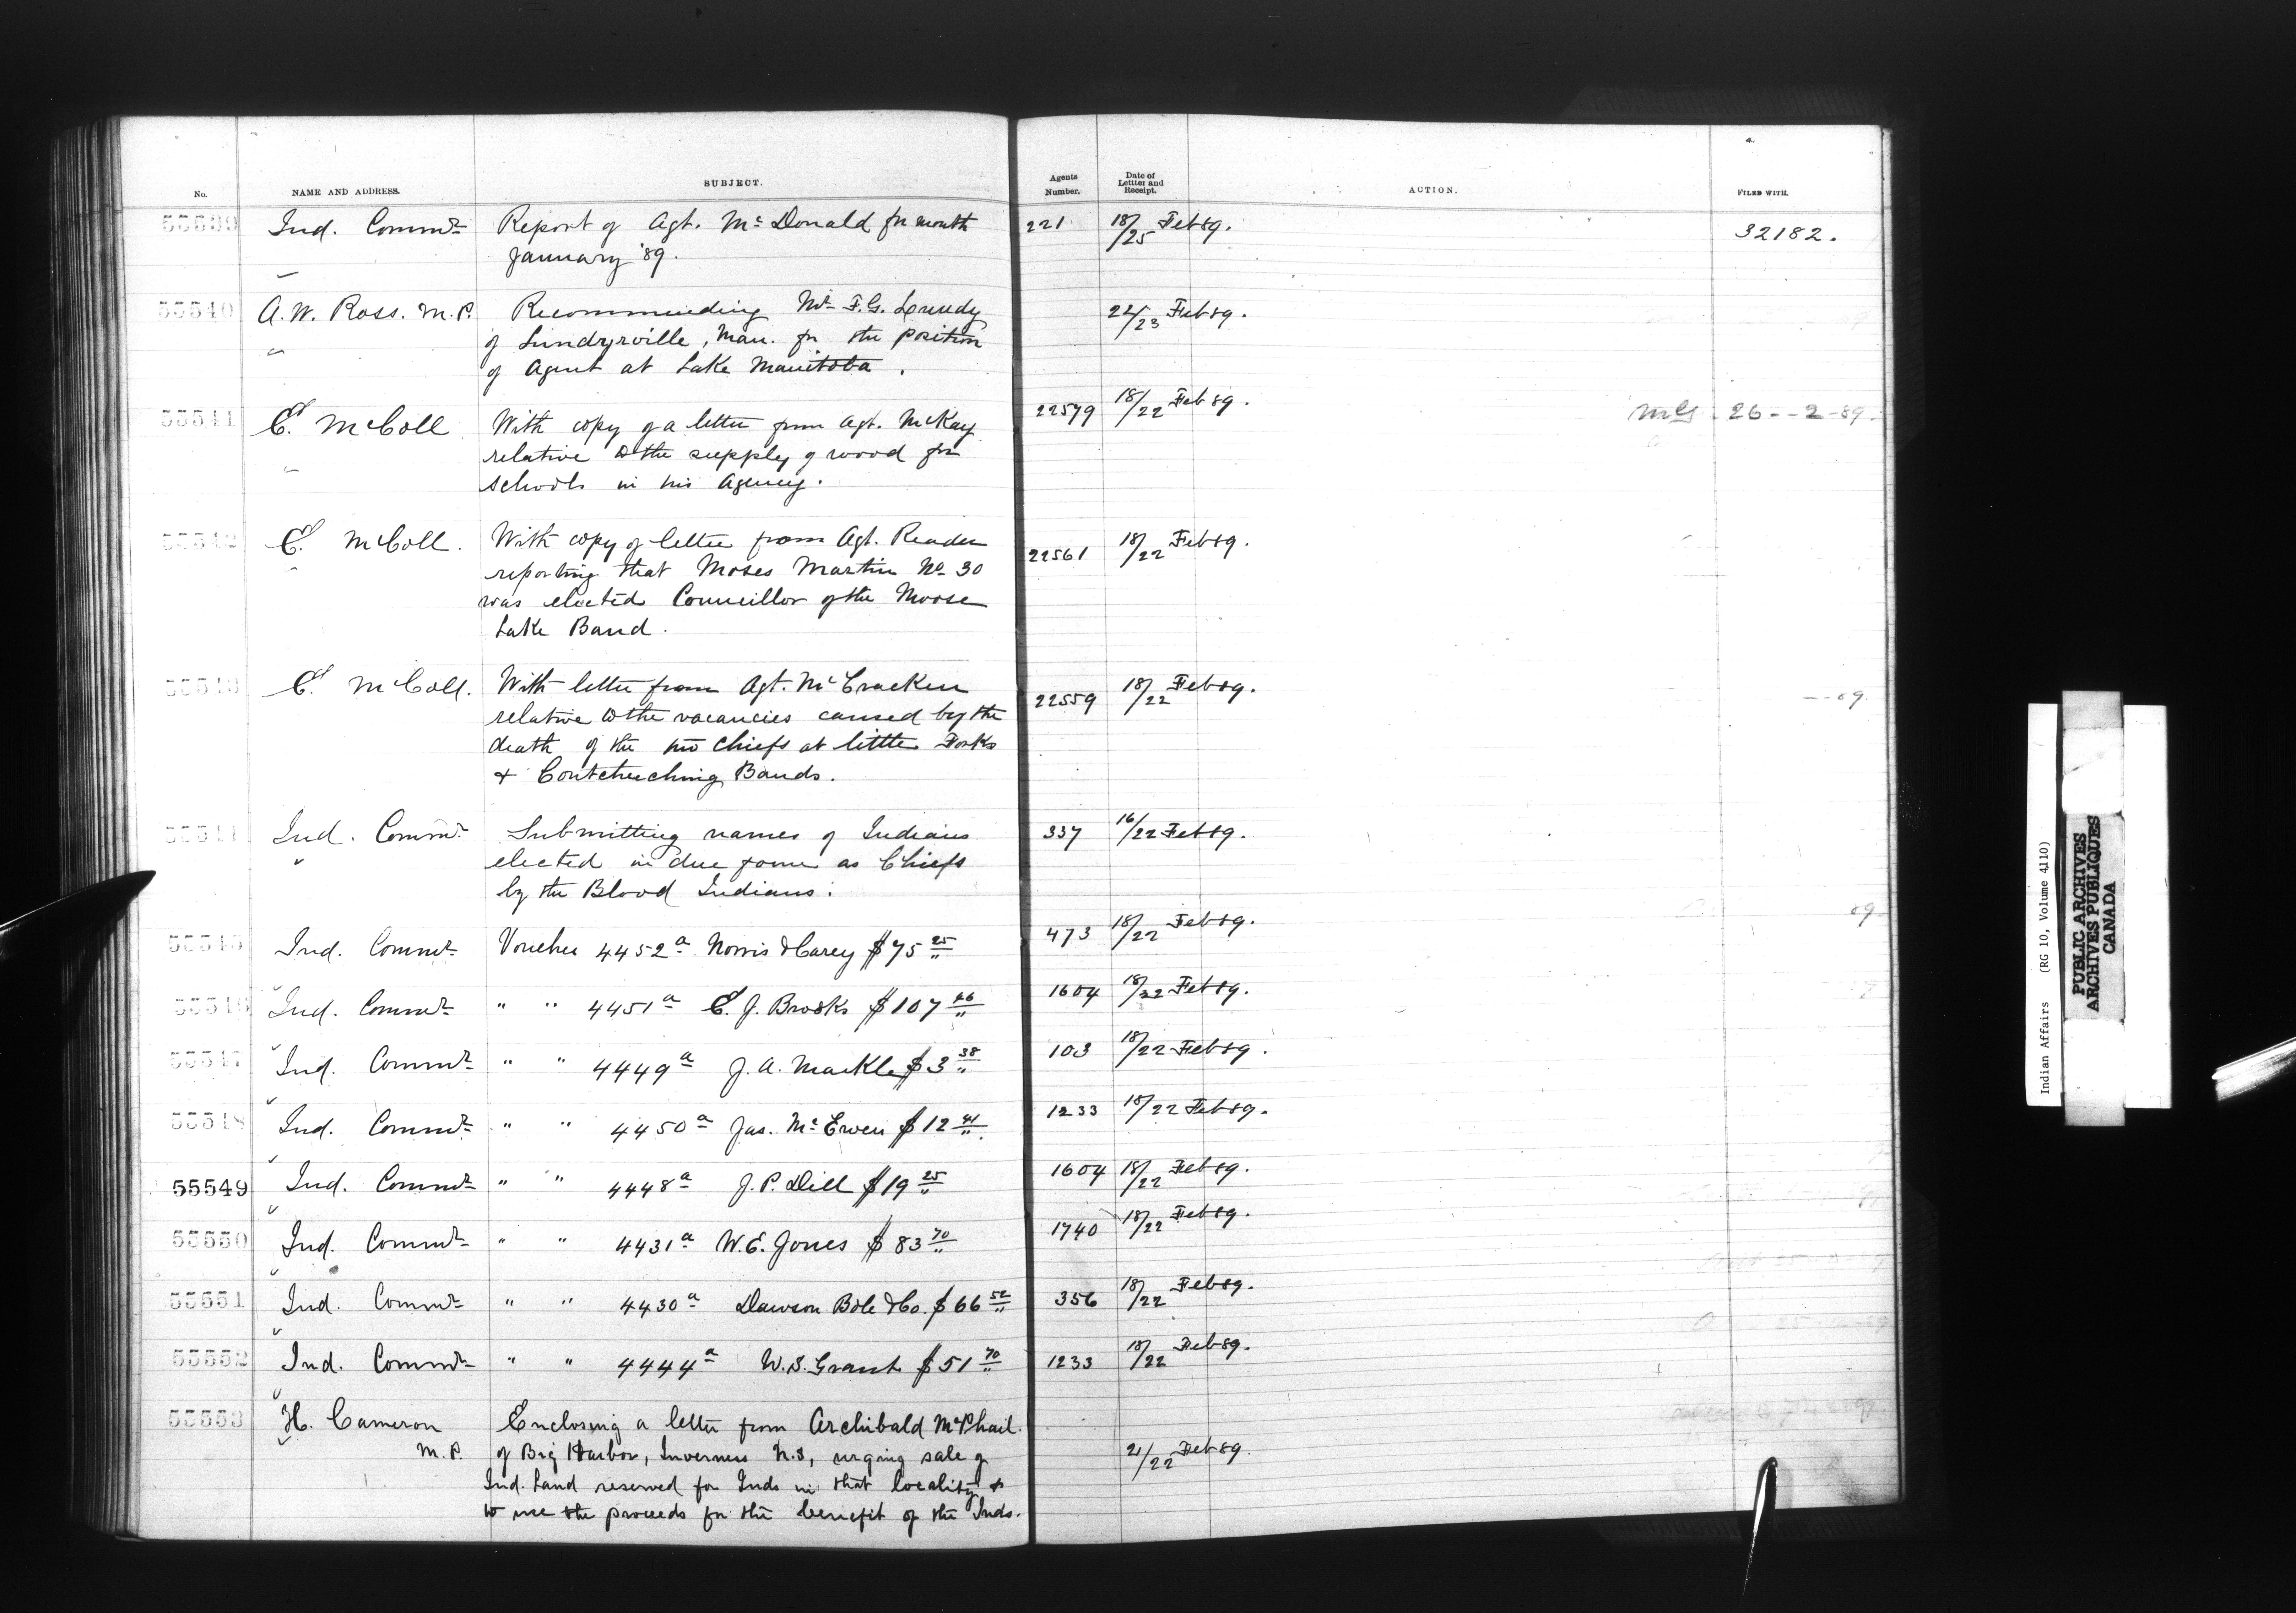 No. NAME AND ADDRESS. SUBJECT. Agents Number. Date of Lettter and Receipt. ACTION. FILED WITH.
55539 Ind. Commr Report of Agt. Mc Donald for month 221 18/25 Feb 89. 32182.
January '89.
55540 A. W. Ross. M. P. Recommending Mr F. G. Lundy 22/23 Feb 89.
of Lundyville, Man. for the position
of Agent at Lake Manitoba.
55541 E. McColl With copy of a letter from Agt. McKay 22579 18/22 Feb 89. 26--2-89.
relative to the supply of wood for
schools in his Agency.
55542 E. McColl. With copy of letter from Agt. Reader 22561 18/22 Feb 89.
reporting that Moses Martin No 30
was elected Councillor of the Moose
Lake Band.
55543 E. McColl. With letter from Agt. McCracken 22559 18/22 Feb 89.
relative to the vacancies caused by the
death of the two chiefs at little Forks
& Coutcheeching Bands.
55544 Ind. Commr Submitting names of Indians 337 16/22 Feb 89.
elected in due form as Chiefs
by the Blood Indians.
55545 Ind. Commr Voucher 4452a Norris & Carey $75 25 473 18/22 Feb 89.
55546 Ind. Commr " " 4451a E. J. Brooks $107 1604 18/22 Feb 89.
55547 Ind. Commr " " 4449a J. A. Markle $3 38 103 18/22 Feb 89.
55548 Ind. Commr " " 4450a Jas. Mc Ewen $12 41 1233 18/22 Feb 89.
55549 Ind. Commr " " 4448a J. P. Dill $19 25 1604 18/22 Feb 89.
55550 Ind. Commr " " 4431a W. E. Jones $83 70 1740 18/22 Feb 89.
55551 Ind. Commr " " 4430a Dawson Bole & Co. $66 52 356 18/22 Feb 89.
55552 Ind. Commr " " 4444a W. S. Grant $51 70 1233 18/22 Feb 89.
55553 H. Cameron Enclosing a letter from Archibald McPhail
M. P. of Big Harbor, Inverness N.S, urging sale of 21/22 Feb 89.
Ind. Land reserved for Inds in that locality &
to use the proceeds for the benefit of the Inds.
Indian Affairs (RG 10, Volume 4110)
PUBLIC ARCHIVES
ARCHIVES PUBLIQUES
CANADA